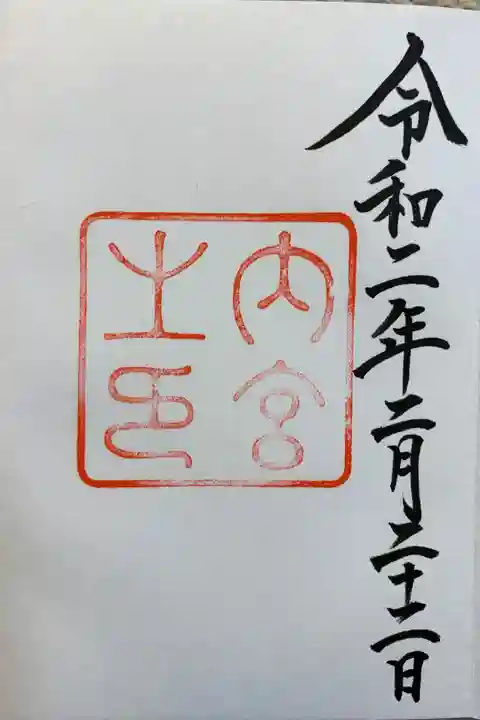 令和二年二月二十二日
内宮
之印